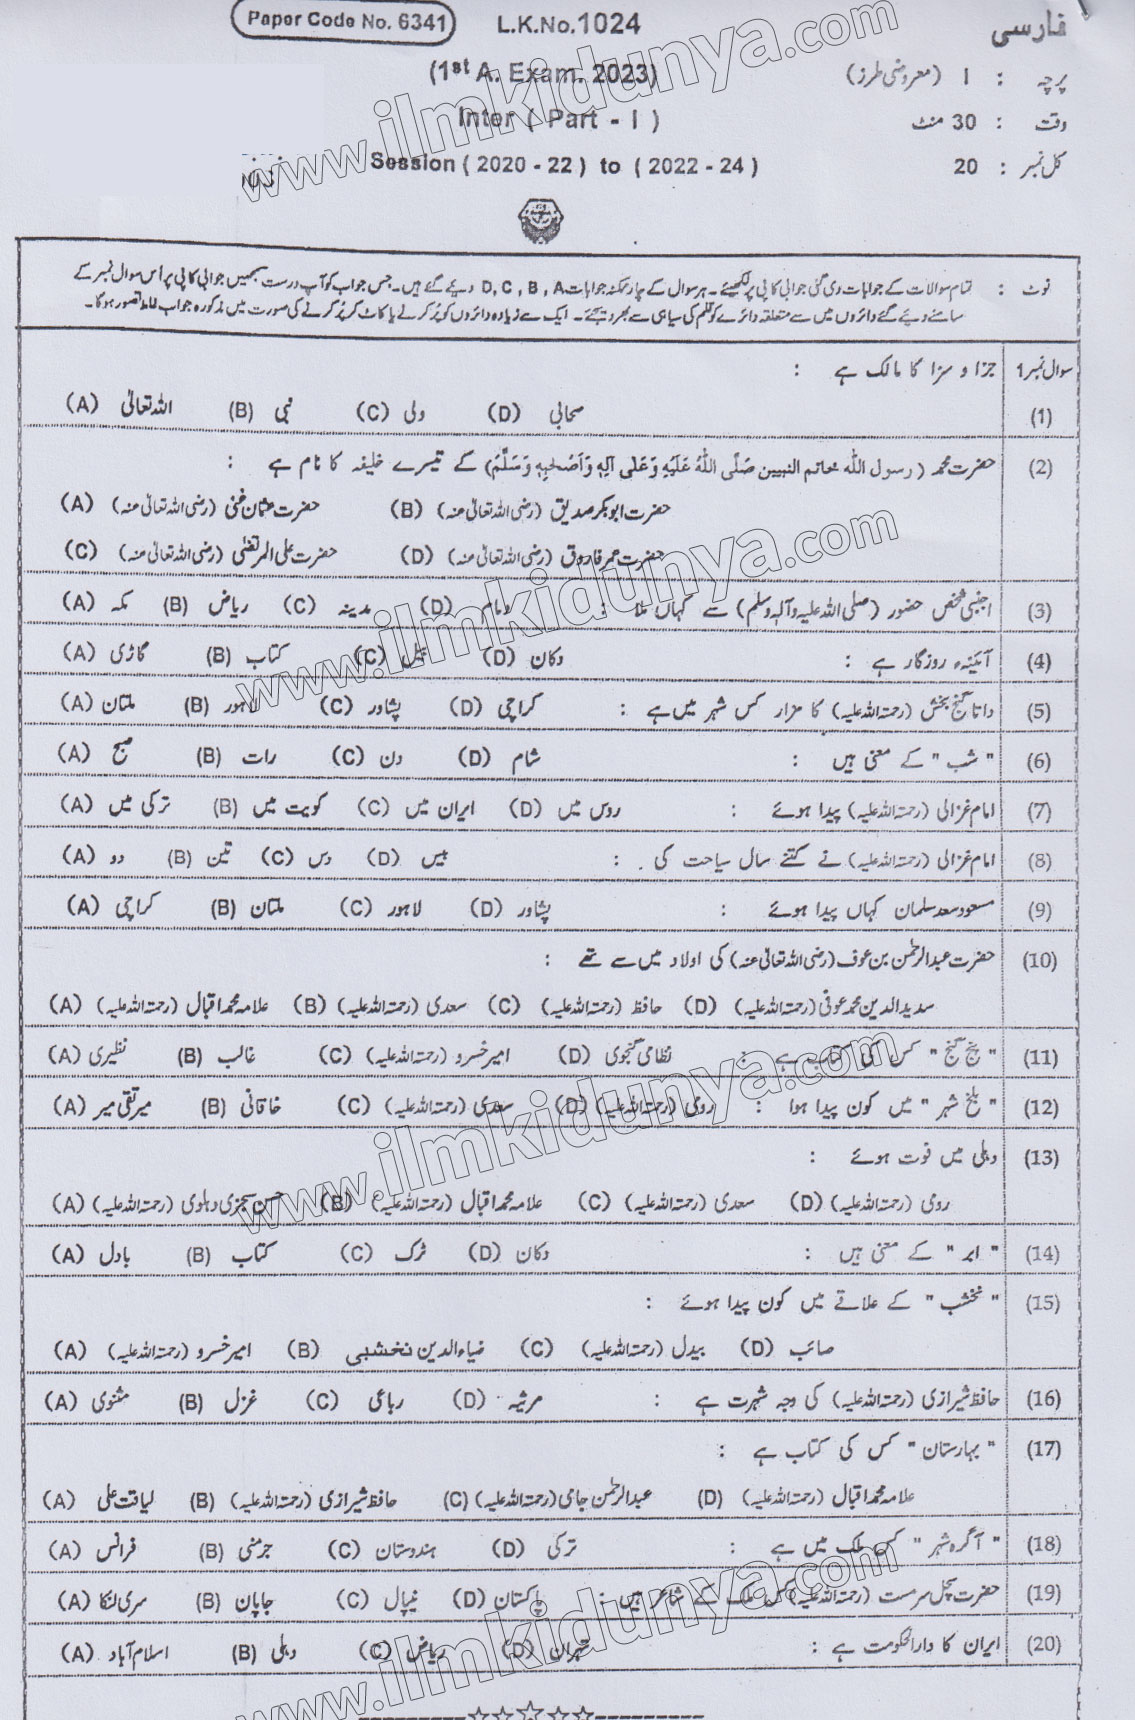 Paper Code No. 6341
L.K.No.1024
فارسی
(1st A. Exam. 2023)
پرچہ : I (معروضی طرز)
Inter ( Part - I )
وقت : 30 منٹ
Session ( 2020 - 22 ) to ( 2022 - 24 )
کل نمبر : 20
نوٹ : تمام سوالات کے جوابات دی گئی جوابی کاپی پر لکھیئے ۔ ہر سوال کے چار ممکنہ جوابات D, C , B , A دیئے گئے ہیں ۔ جس جواب کو آپ درست سمجھیں جوابی کاپی پر اس سوال نمبر کے
سامنے دیئے گئے دائروں میں سے متعلقہ دائرے کو قلم کی سیاہی سے بھر دیجئے ۔ ایک سے زیادہ دائروں کو پُر کرنے یا کاٹ کر پُر کرنے کی صورت میں مذکورہ جواب غلط تصور ہوگا ۔
سوال نمبر 1 جزا و سزا کا مالک ہے :
(1) صحابی (D) ولی (C) نبی (B) اللہ تعالیٰ (A)
(2) حضرت محمد (رسول اللہ خاتم النبیین صَلَّی اللہُ عَلَیْہِ وَعَلٰی آلِہٖ وَاَصْحٰبِہٖ وَسَلَّمَ) کے تیسرے خلیفہ کا نام ہے :
حضرت ابوبکر صدیق (رضی اللہ تعالیٰ عنہ) (B) حضرت عثمان غنی (رضی اللہ تعالیٰ عنہ) (A)
حضرت عمر فاروق (رضی اللہ تعالیٰ عنہ) (D) حضرت علی المرتضٰی (رضی اللہ تعالیٰ عنہ) (C)
(3) اجنبی شخص حضور (صلی اللہ علیہ وآلہٖ وسلم) سے کہاں ملا : دمام (D) مدینہ (C) ریاض (B) مکہ (A)
(4) آئینہء روزگار ہے : دکان (D) (C) کتاب (B) گاڑی (A)
(5) داتا گنج بخش (رحمتہ اللہ علیہ) کا مزار کس شہر میں ہے : کراچی (D) پشاور (C) لاہور (B) ملتان (A)
(6) " شب " کے معنی ہیں : شام (D) دن (C) رات (B) صبح (A)
(7) امام غزالی (رحمتہ اللہ علیہ) پیدا ہوئے : روس میں (D) ایران میں (C) کویت میں (B) ترکی میں (A)
(8) امام غزالی (رحمتہ اللہ علیہ) نے کتنے سال سیاحت کی : بیس (D) دس (C) تین (B) دو (A)
(9) مسعود سعد سلمان کہاں پیدا ہوئے : پشاور (D) لاہور (C) ملتان (B) کراچی (A)
(10) حضرت عبدالرحمٰن بن عوف (رضی اللہ تعالیٰ عنہ) کی اولاد میں سے تھے :
سدید الدین محمد عوفی (رحمتہ اللہ علیہ) (D) حافظ (رحمتہ اللہ علیہ) (C) سعدی (رحمتہ اللہ علیہ) (B) علامہ محمد اقبال (رحمتہ اللہ علیہ) (A)
(11) " پنج گنج " کس کی کتاب ہے : نظامی گنجوی (D) امیر خسرو (رحمتہ اللہ علیہ) (C) غالب (B) نظیری (A)
(12) " بلخ شہر " میں کون پیدا ہوا : رومی (رحمتہ اللہ علیہ) (D) سعدی (رحمتہ اللہ علیہ) (C) خاقانی (B) میر تقی میر (A)
(13) دہلی میں فوت ہوئے :
رومی (رحمتہ اللہ علیہ) (D) سعدی (رحمتہ اللہ علیہ) (C) علامہ محمد اقبال (رحمتہ اللہ علیہ) (B) حسن سجزی دہلوی (رحمتہ اللہ علیہ) (A)
(14) " ابر " کے معنی ہیں : دکان (D) ٹرک (C) کتاب (B) بادل (A)
(15) " نخشب " کے علاقے میں کون پیدا ہوئے :
صائب (D) بیدل (رحمتہ اللہ علیہ) (C) ضیاء الدین نخشبی (B) امیر خسرو (رحمتہ اللہ علیہ) (A)
(16) حافظ شیرازی (رحمتہ اللہ علیہ) کی وجہ شہرت ہے : مرثیہ (D) رباعی (C) غزل (B) مثنوی (A)
(17) " بہارستان " کس کی کتاب ہے :
علامہ محمد اقبال (رحمتہ اللہ علیہ) (D) عبدالرحمٰن جامی (رحمتہ اللہ علیہ) (C) حافظ شیرازی (رحمتہ اللہ علیہ) (B) لیاقت علی (A)
(18) " آگرہ شہر " کس ملک میں ہے : ترکی (D) ہندوستان (C) جرمنی (B) فرانس (A)
(19) حضرت سچل سرمست (رحمتہ اللہ علیہ) کس ملک کے شاعر ہیں : پاکستان (D) نیپال (C) جاپان (B) سری لنکا (A)
(20) ایران کا دارالحکومت ہے : تہران (D) ریاض (C) دہلی (B) اسلام آباد (A)
www.ilmkidunya.com
www.ilmkidunya.com
www.ilmkidunya.com
www.ilmkidunya.com